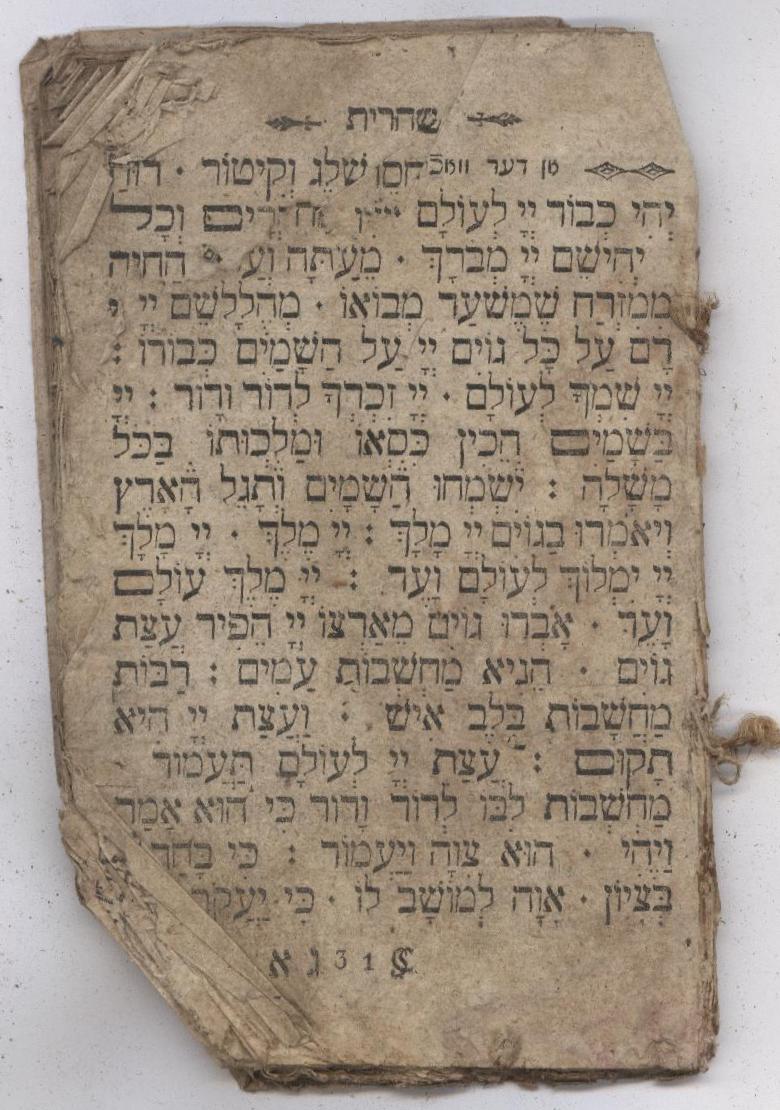 שהרית
טן דער שלג וקיטור · רוח
יְהִי כְבוֹד יְיָ לְעוֹלָם וְכָל
יְהִישֵׁם יְיָ מְבֹרָךְ · מֵעַתָּה וְעַ
מִמִזְרַח שֶׁמֶשׁעַד מְבוֹאוֹ · מְהֻלָלשֵׁם יְיָ
רָם עַל כָּל גוֹיִם יְיָ עַל הַשָּׁמַיִם כְּבוֹדוֹ :
יְיָ שִׁמְךָ לְעוֹלָם · יְיָ זִכְרְךָ לְדוֹר וָדוֹר : יְיָ
בַּשָׁמַיִם הֵכִין כִּסְאוֹ וּמַלְכוּתוֹ בַּכֹּל
מָשָׁלָה : יִשְׂמְחוּ הַשָׁמַיִם וְתָגֵל הָאָרֶץ
וְיֹאמְרוּ בַגוֹיִם יְיָ מָלָךְ : יְיָ מֶלֶךְ · יְיָ מָלָךְ
יְיָ יִמְלוֹךְ לְעוֹלָם וָעֶד : יְיָ מֶלֶךְ עוֹלָם
וָעֶד · אָבְדוּ גוֹיִם מֵאַרְצוֹ יְיָ הֵפִיר עֲצַת
גוֹיִם · הֵנִיא מַחְשְׁבוֹת עַמִים : רַבּוֹת
מַחֲשָׁבוֹת בְּלֵב אִישׁ · וַעֲצַת יְיָ הִיא
תָקוּם : עֲצַת יְיָ לְעוֹלָם תַּעֲמוֹד
מַחְשְׁבוֹת לִבּוֹ לְדוֹר וָדוֹר כִּי הוּא אָמַר
וַיֶּהִי · הוּא צִוָּה וַיַּעֲמוֹד : כִּי בָחַר
בְּצִיוֹן · אִוָּה לְמוֹשָׁב לוֹ · כִּי יַעֲקֹב
31 ג א